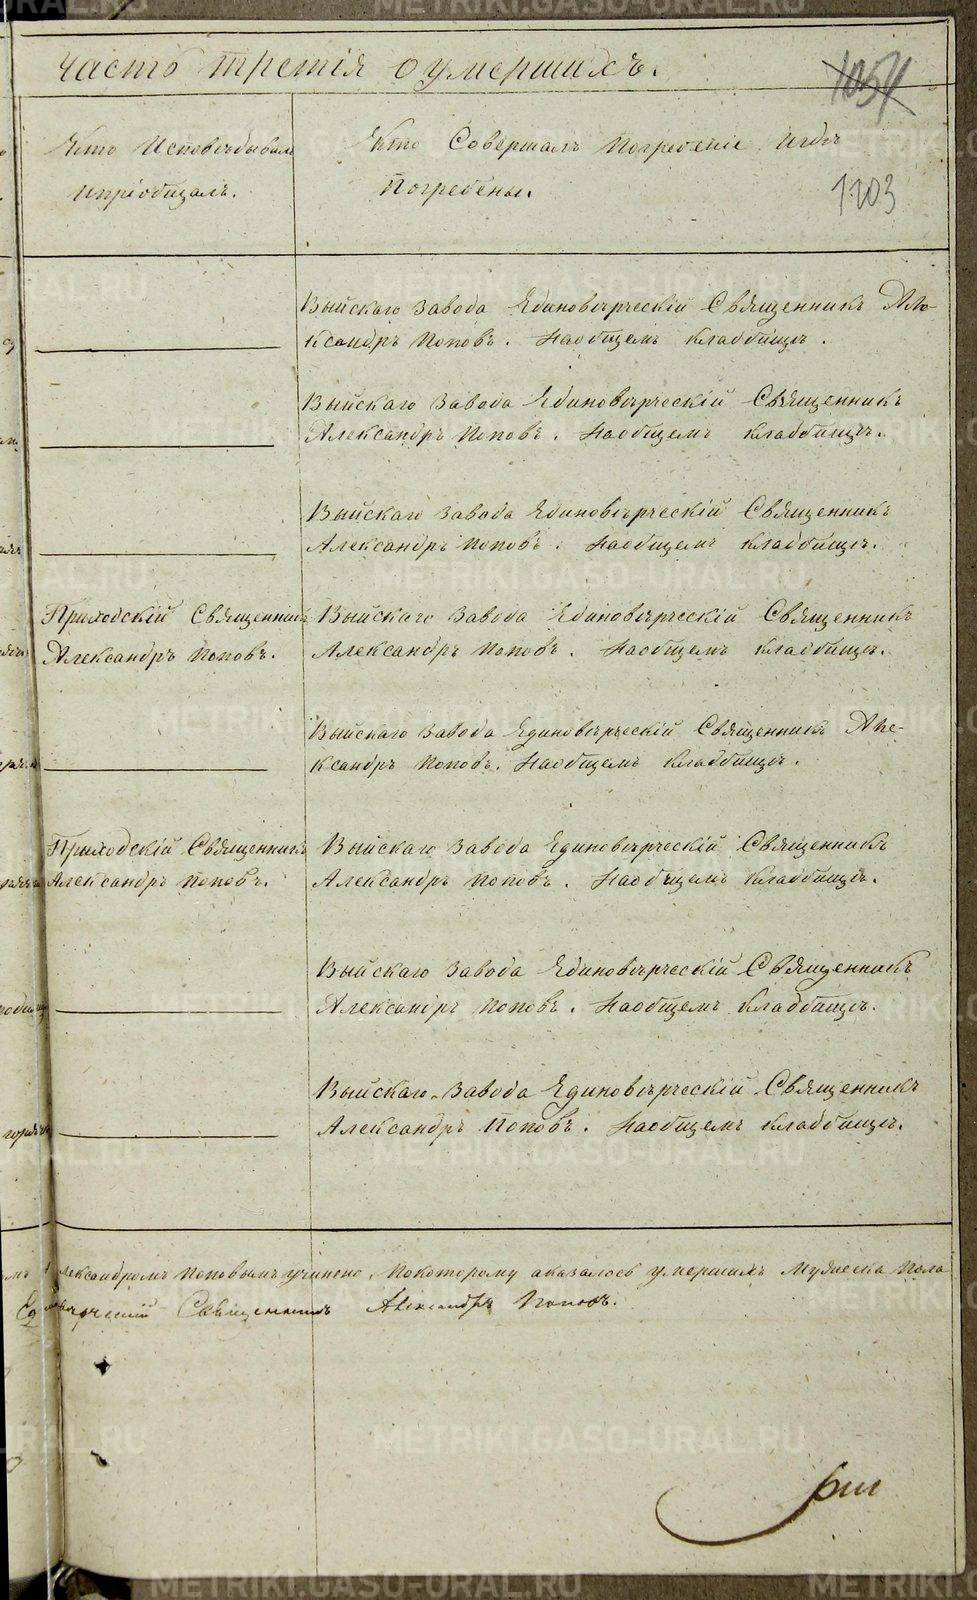 часть третія о умершихъ.
1054
Кто Исповѣдывалъ
Ипріобщалъ.
Кто Совершалъ Погребеніе Игдѣ
Погребены.
1103
Выйскаго Завода Единовѣрческій Священникъ Але-
ксандръ Поповъ. Наобщемъ кладбищѣ.
Выйскаго Завода Единовѣрческій Священникъ
Александръ Поповъ. Наобщемъ кладбищѣ.
Выйскаго Завода Единовѣрческій Священникъ
Александръ Поповъ. Наобщемъ кладбищѣ.
Приходскій Священникъ
Александръ Поповъ.
Выйскаго Завода Единовѣрческій Священникъ
Александръ Поповъ. Наобщемъ кладбищѣ.
Выйскаго Завода Единовѣрческій Священникъ Але-
ксандръ Поповъ. Наобщемъ кладбищѣ.
Приходскій Священникъ
Александръ Поповъ.
Выйскаго Завода Единовѣрческій Священникъ
Александръ Поповъ. Наобщемъ кладбищѣ.
Выйскаго Завода Единовѣрческій Священникъ
Александръ Поповъ. Наобщемъ кладбищѣ.
Выйскаго Завода Единовѣрческій Священникъ
Александръ Поповъ. Наобщемъ кладбищѣ.
лександромъ Поповымъ учинено, Покоторому оказалось умершихъ Мужеска Пола
Единовѣрческій Священникъ Александръ Поповъ.
METRIKI.GASO-URAL.RU